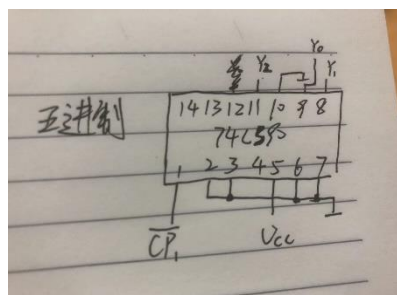 Y₀
Y₂ Y₁
五进制
14 13 12 11 10 9 8
74LS90
1 2 3 4 5 6 7
CP₁ Vcc